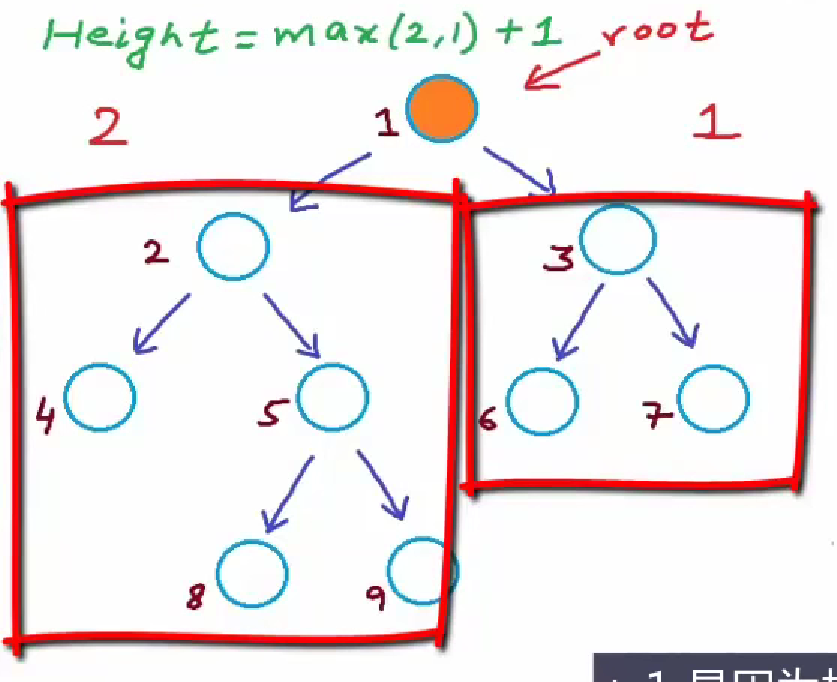 Height = max(2,1) + 1
root
1
2
1
2
3
4
5
6
7
8
9